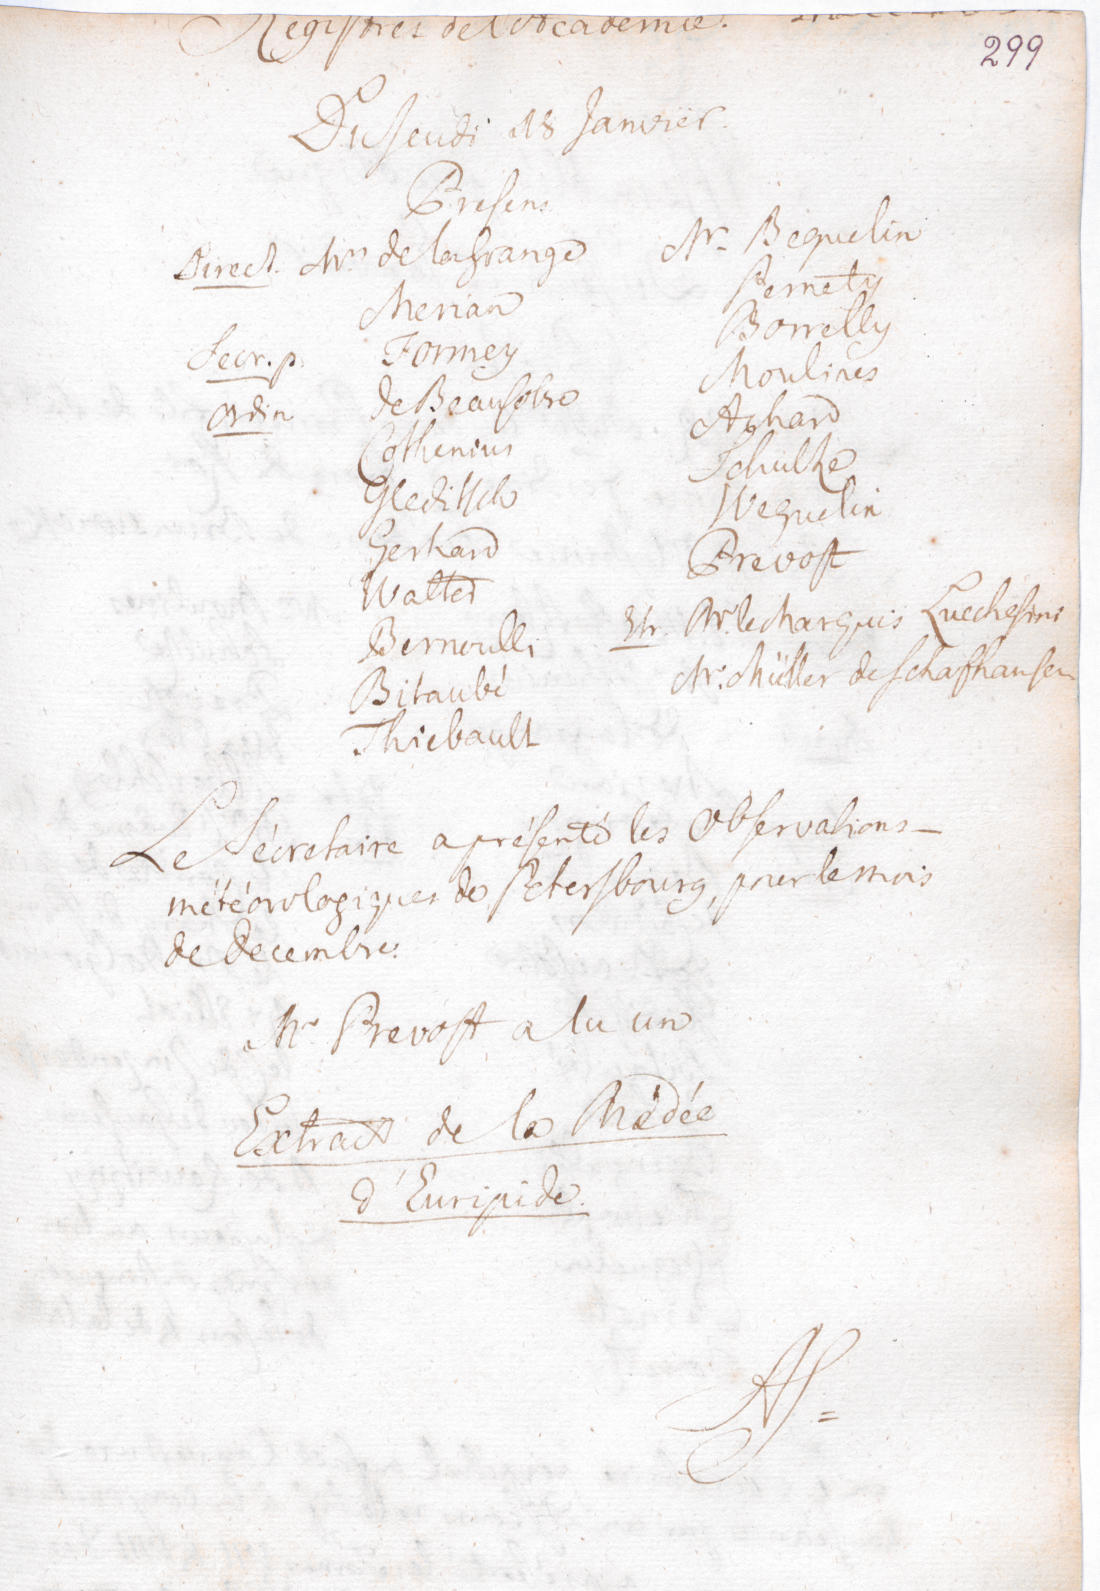 Registres de l'Academie.
299
Du Jeudi 18 Janvier.
Presens
Direct. Mrs de la Grange
Merian
Secr. p. Formey
Ordin de Beausobre
Cothenius
Gleditsch
Gerhard
Walter
Bernoulli
Bitaubé
Thiebault
Mr. Beguelin
Pernety
Borrelly
Moulines
Achard
Schultze
Weguelin
Prevost
Etr. Mr. le Marquis Lucchesini
Mr. Müller de Schafhausen
Le Sécretaire a présenté les Observations
météorologiques de Petersbourg, pour le mois
de Decembre.
Mr. Prevost a lu un
Extract de la Médée
d'Euripide.